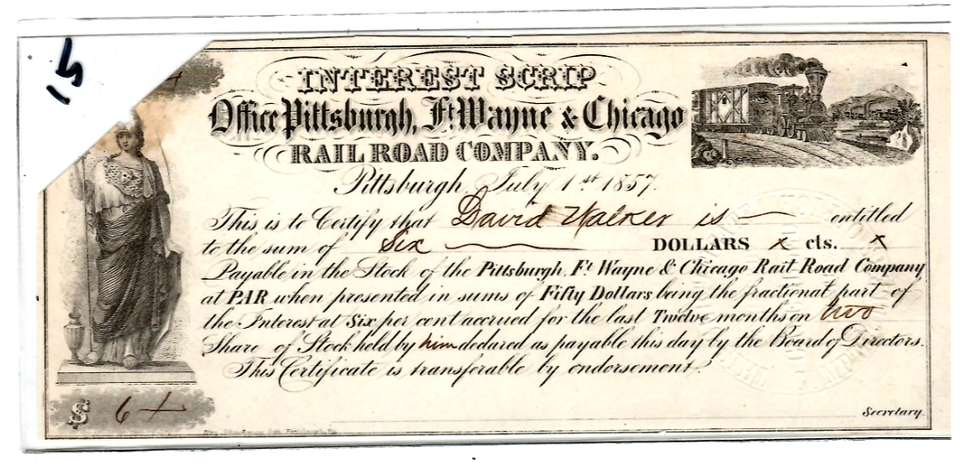 15
INTEREST SCRIP
Office Pittsburgh, Ft. Wayne & Chicago
RAIL ROAD COMPANY.
Pittsburgh, July 1st 1857.
This is to Certify that David Walker is — entitled
to the sum of Six — DOLLARS x cts. x
Payable in the Stock of the Pittsburgh, Ft. Wayne & Chicago Rail Road Company
at PAR when presented in sums of Fifty Dollars being the fractional part of
the Interest at Six per cent accrued for the last Twelve months on two
Share of Stock held by him declared as payable this day by the Board of Directors.
This Certificate is transferable by endorsement.
$ 6 x
Secretary.